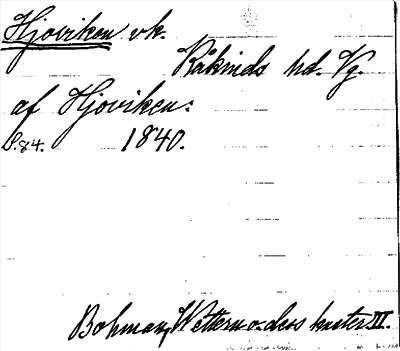 Hjoviken vk.
Kåkinds hd. Vg.
af Hjoviken:
S. 84. 1840.
Bohman, Wettern o. dess kuster III.